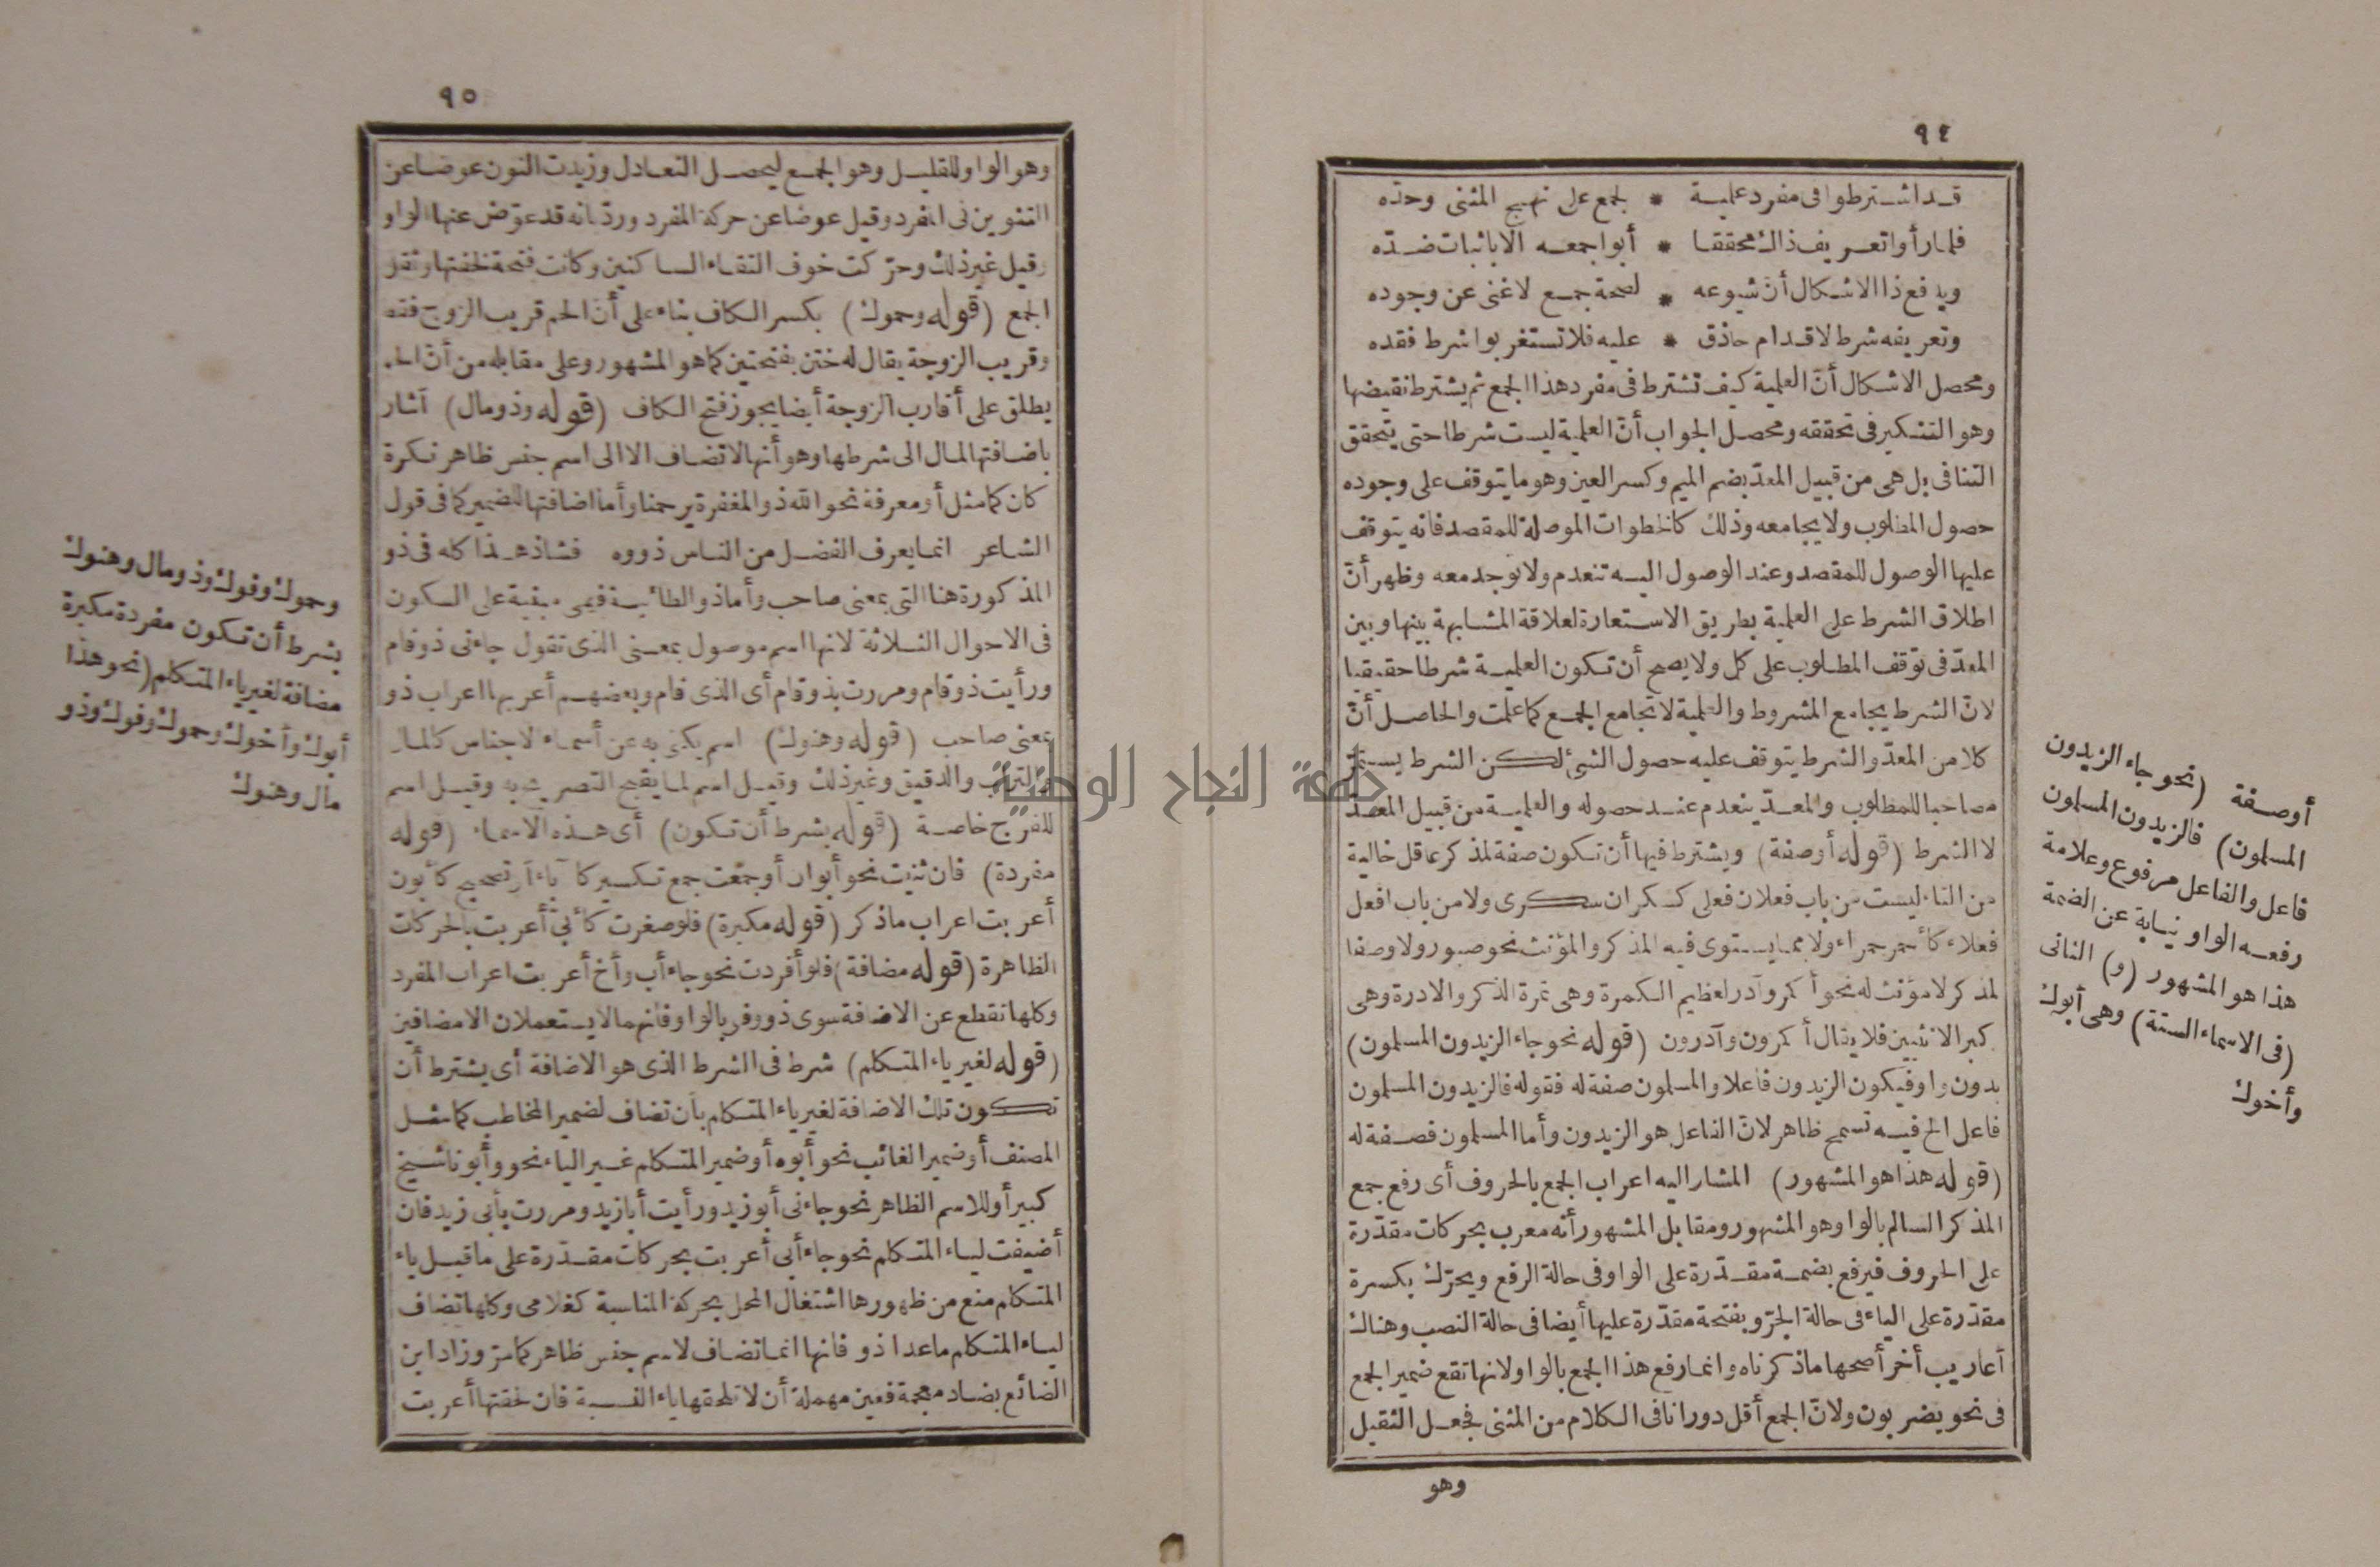 ٩٤
قد اشترطوا فى مفرد علمية * لجمع على نهج المثنى وحده
فلما رأوا تعريف ذاك محققا * أبوا جمعه الا باثبات ضده
ويدفع ذا الاشكال أن شيوعه * لصحة جمع لا غنى عن وجوده
وتعريفه شرط لاقدام حاذق * عليه فلا تستغربوا شرط فقده
ومحصل الاشكال أنّ العلمية كيف تشترط فى مفرد هذا الجمع ثم يشترط نقيضها
وهو التنكير فى تحققه ومحصل الجواب أنّ العلمية ليست شرطا حتى يتحقق
التنافى بل هى من قبيل المعدّ بضم الميم وكسر العين وهو ما يتوقف على وجوده
حصول المطلوب ولا يجامعه وذلك كالخطوات الموصلة للمقصد فانه يتوقف
عليها الوصول للمقصد وعند الوصول اليه تنعدم ولا توجد معه وظهر أنّ
اطلاق الشرط على العلمية بطريق الاستعارة لعلاقة المشابهة بينها وبين
المعدّ فى توقف المطلوب على كل ولا يصح أن تكون العلمية شرطا حقيقيا
لانّ الشرط يجامع المشروط والعلمية لا تجامع الجمع كما علمت والحاصل أنّ
كلا من المعدّ والشرط يتوقف عليه حصول الشئ لكن الشرط يستمرّ
مصاحبا للمطلوب والمعدّ ينعدم عند حصوله والعلمية من قبيل المعدّ
لا الشرط (قوله أوصفة) ويشترط فيها أن تكون صفة لمذكر عاقل خالية
من التاء ليست من باب فعلان فعلى كسكران سكرى ولا من باب افعل
فعلاء كأحمر حمراء ولا مما يستوى فيه المذكر والمؤنث نحو صبور ولا وصفا
لمذكر لا مؤنث له نحو أكمر وآدر لعظيم الكمرة وهى تمرة الذكر والادرة وهى
كبر الانثيين فلا يقال أكمرون وآدرون (قوله نحو جاء الزيدون المسلمون)
بدون واو فيكون الزيدون فاعلا والمسلمون صفة له فقوله فالزيدون المسلمون
فاعل الخ فيه تسمح ظاهر لانّ الفاعل هو الزيدون وأما المسلمون فصفة له
(قوله هذا هو المشهور) المشار اليه اعراب الجمع بالحروف أى رفع جمع
المذكر السالم بالواو هو المشهور ومقابل المشهور أنه معرب بحركات مقدّرة
على الحروف فيرفع بضمة مقدّرة على الواو فى حالة الرفع ويحرّك بكسرة
مقدّرة على الياء فى حالة الجرّ وبفتحة مقدّرة عليها أيضا فى حالة النصب وهناك
أعاريب أخر أصحها ما ذكرناه وانما رفع هذا الجمع بالواو لانها تقع ضمير الجمع
فى نحو يضربون ولانّ الجمع أقل دورانا فى الكلام من المثنى فجعل الثقيل
وهو
أوصفة (نحو جاء الزيدون
المسلمون) فالزيدون المسلمون
فاعل والفاعل مرفوع وعلامة
رفعه الواو نيابة عن الضمة
هذا هو المشهور (و) الثانى
(فى الاسماء الستة) وهى أبوك
وأخوك
٩٥
وهو الواو للقليل وهو الجمع ليحصل التعادل وزيدت النون عوضا عن
التنوين فى المفرد وقيل عوضا عن حركة المفرد وردّ بانه قد عوّض عنها الواو
وقيل غير ذلك وحرّكت خوف التقاء الساكنين وكانت فتحة لخفتها وثقل
الجمع (قوله وحموك) بكسر الكاف بناء على أنّ الحم قريب الزوج فقط
وقريب الزوجة يقال له ختن بفتحتين كما هو المشهور وعلى مقابله من أنّ الحم
يطلق على أقارب الزوجة أيضا يجوز فتح الكاف (قوله وذو مال) أشار
باضافتها لمال الى شرطها وهو أنها لا تضاف الا الى اسم جنس ظاهر نكرة
كان كما مثل أو معرفة نحو الله ذو المغفرة يرحمنا وأما اضافتها للضمير كما فى قول
الشاعر انما يعرف الفضل من الناس ذووه فشاذ هذا كله فى ذو
المذكورة هنا التى بمعنى صاحب وأما ذو الطائية فهى مبنية على السكون
فى الاحوال الثلاثة لانها اسم موصول بمعنى الذى تقول جاءنى ذو قام
ورأيت ذو قام ومررت بذو قام أى الذى قام وبعضهم أعربها اعراب ذو
بمعنى صاحب (قوله وهنوك) اسم يكنى به عن أسماء الاجناس كالمال
والتراب والدقيق وغير ذلك وقيل اسم لما يقبح التصريح به وقيل اسم
للفرج خاصة (قوله بشرط أن تكون) أى هذه الاسماء (قوله
مفردة) فان ثنيت نحو أبوان أو جمعت جمع تكسير كآباء أو تصحيح كأبون
أعربت اعراب ما ذكر (قوله مكبرة) فلو صغرت كأبىّ أعربت بالحركات
الظاهرة (قوله مضافة) فلو أفردت نحو جاء أب وأخ أعربت اعراب المفرد
وكلها تقطع عن الاضافة سوى ذو وفو بالواو فانهما لا يستعملان الا مضافين
(قوله لغير ياء المتكلم) شرط فى الشرط الذى هو الاضافة أى يشترط أن
تكون تلك الاضافة لغير ياء المتكلم بأن تضاف لضمير المخاطب كما مثل
المصنف أو ضمير الغائب نحو أبوه أو ضمير المتكلم غير الياء نحو وأبونا شيخ
كبير أو للاسم الظاهر نحو جاءنى أبو زيد ورأيت أبا زيد ومررت بأبى زيد فان
أضيفت لياء المتكلم نحو جاء أبى أعربت بحركات مقدّرة على ما قبل ياء
المتكلم منع من ظهورها اشتغال المحل بحركة المناسبة كغلامى وكلها تضاف
لياء المتكلم ما عدا ذو فانها انما تضاف لاسم جنس ظاهر كما مرّ وزاد ابن
الضائع بضاد معجمة فعين مهملة أن لا تلحقها ياء النسبة فان لحقتها أعربت
وحموك وفوك وذو مال وهنوك
بشرط أن تكون مفردة مكبرة
مضافة لغير ياء المتكلم (نحو هذا
أبوك وأخوك وحموك وفوك وذو
مال وهنوك
جامعة النجاح الوطنية